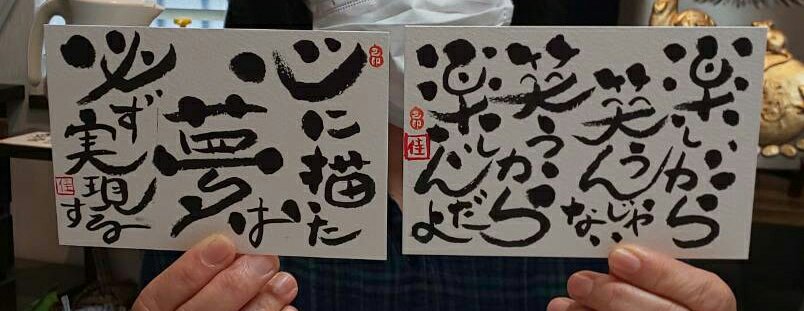 心に描いた
夢は
必ず実現する
楽しいから
笑うんじゃない
笑うから
楽しいんだよ
佳
佳